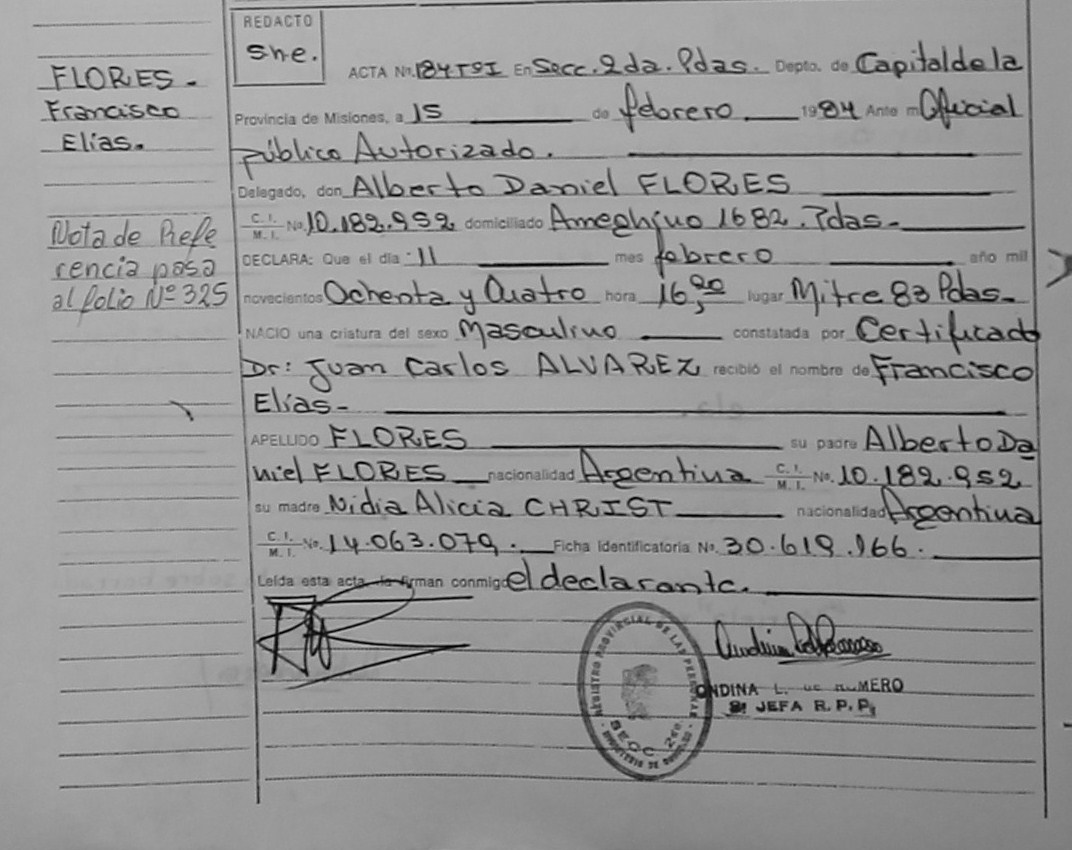 REDACTO
She.
FLORES.
Francisco
Elías.
Nota de Refe
rencia pasa
al folio Nº 325
ACTA Nº. 184 TºI En Secc. 2da. Pdas. Depto. de Capital de la
Provincia de Misiones, a 15 de febrero 1984 Ante mí Oficial
público Autorizado.
Delegado, don Alberto Daniel FLORES
C. I. M. I. Nº. 10.182.952 domiciliado Ameghino 1682. Pdas.
DECLARA: Que el día 11 mes febrero año mil
novecientos Ochenta y Cuatro hora 16,20 lugar Mitre 83 Pdas.
NACIO una criatura del sexo Masculino constatada por Certificado
Dr: Juan Carlos ALVAREZ recibió el nombre de Francisco
Elías.
APELLIDO FLORES su padre Alberto Da
niel FLORES nacionalidad Argentina C. I. M. I. Nº. 10.182.952
su madre Nidia Alicia CHRIST nacionalidad Argentina
C. I. M. I. Nº. 14.063.079. Ficha Identificatoria Nº. 30.619.166.
Leída esta acta, la firman conmigo el declarante.
REGISTRO PROVINCIAL DE LAS PERSONAS
SECC 2da.
ONDINA L. de ROMERO
JEFA R.P.P.